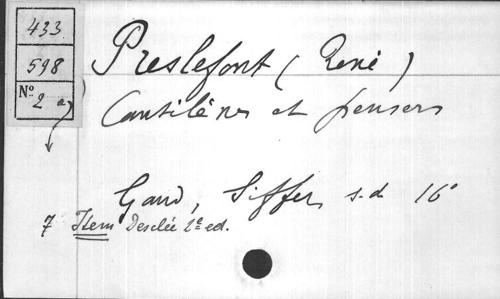 433
598
No 2 a)
Preslefont (René)
Cantilènes et pensers
Gand, Siffer, s.d 16°
7 Item Desclée 2e ed.